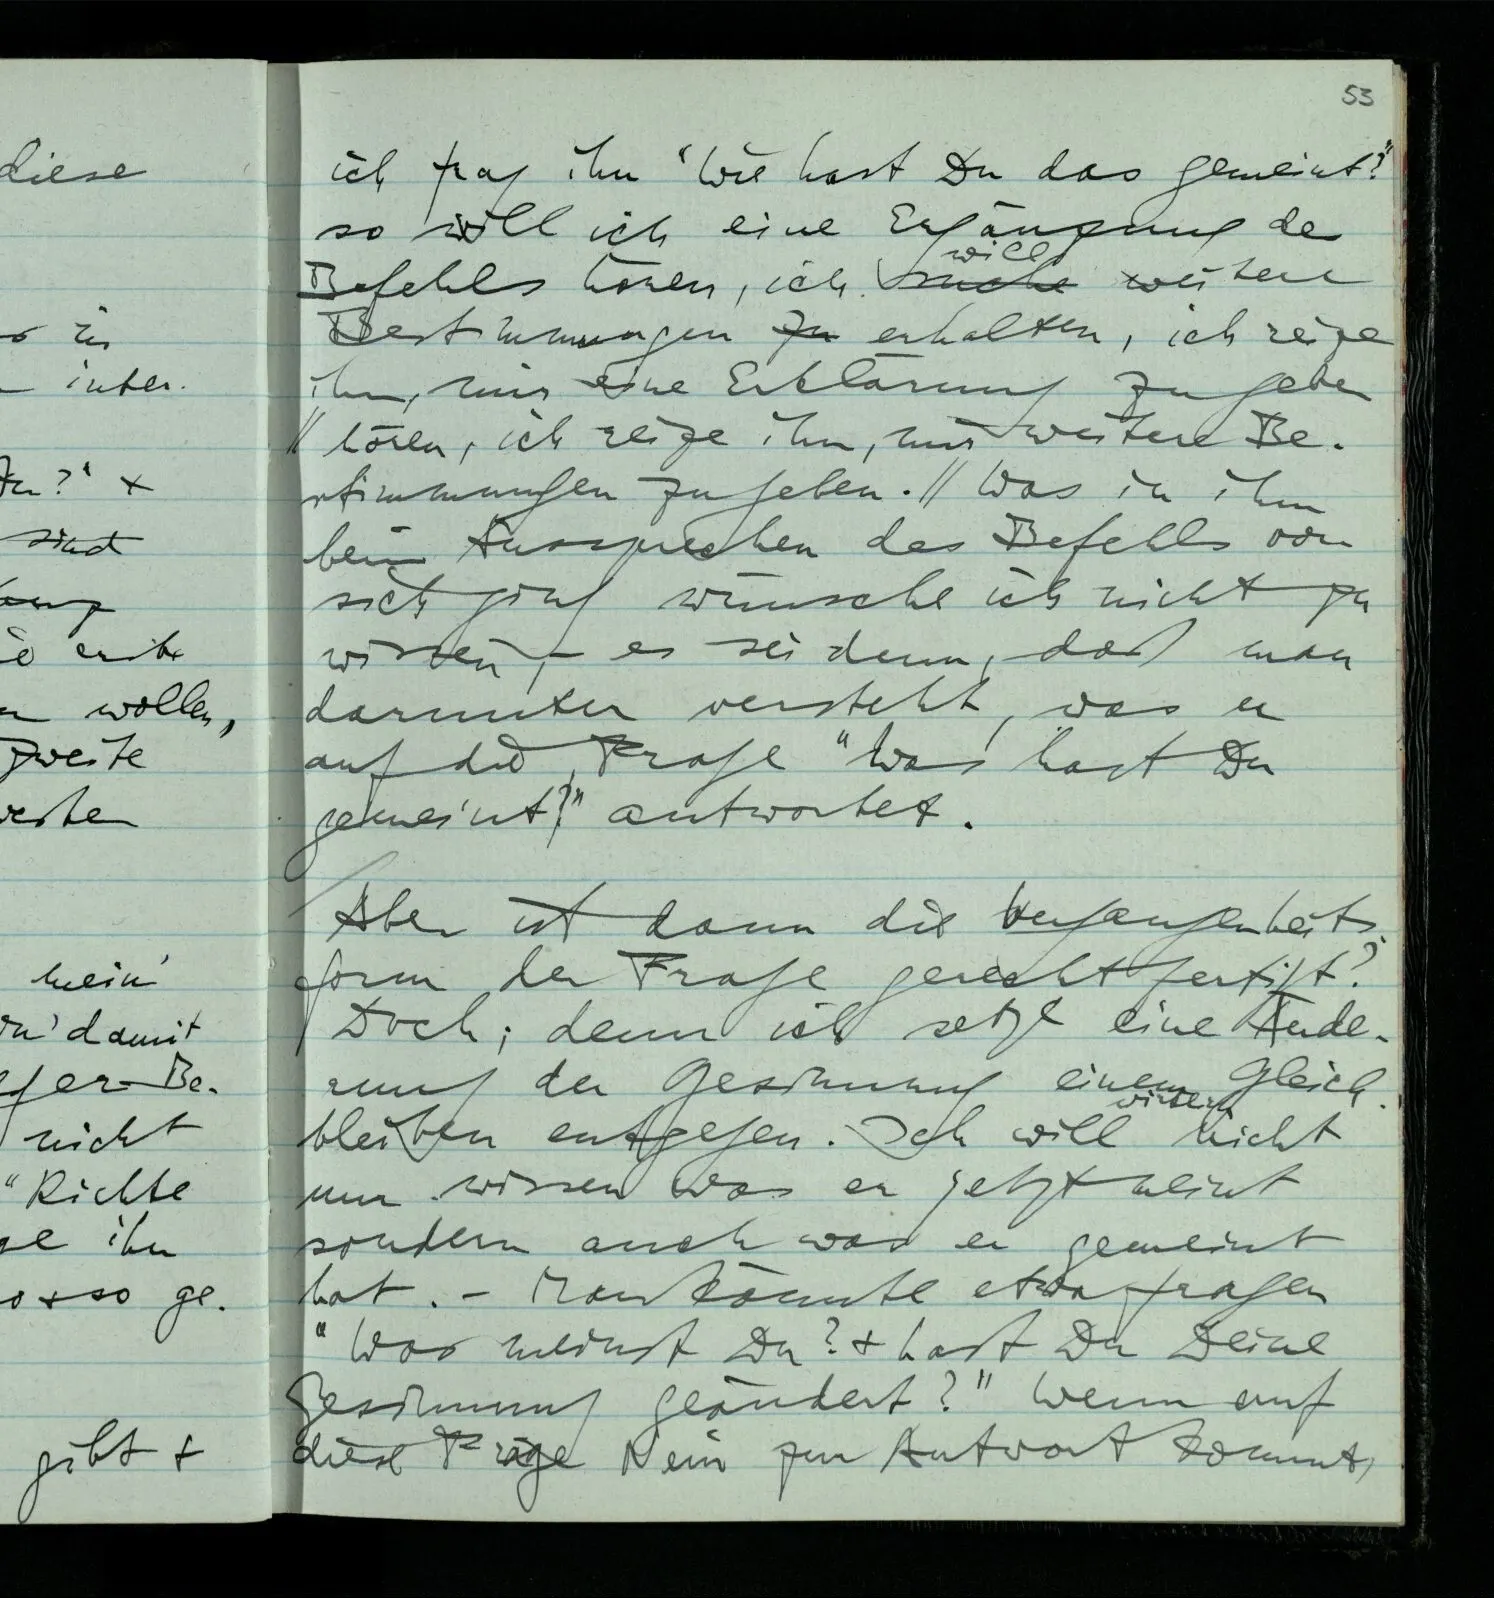 diese
r in
inter.
Du?" +
sind
wollen,
zweite
mein'
Du' damit
Be-
nicht
"Richte
ihn
so + so ge-
gibt +
53
ich frag ihn "Wie hast Du das gemeint?"
so will ich eine Ergänzung des
Befehls hören, ich will suche weitere
Bestimmungen zu erhalten, ich reize
ihn, mir eine Erklärung zu geben
// hören, ich reize ihn, mir weitere Be-
stimmungen zu geben. // Was in ihm
beim Aussprechen des Befehls vor
sich ging wünsche ich nicht zu
wissen, – es sei denn, daß man
darunter versteht, was er
auf die Frage "Was hast Du
gemeint?" antwortet.
Aber ist dann die Vergangenheits-
form der Frage gerechtfertigt?
Doch; denn ich setze eine Ände-
rung der Gesinnung einem Gleich-
bleiben entgegen. Ich will nicht
nur wissen was er jetzt meint
sondern auch was er gemeint
hat. – Man könnte etwa fragen
"Was meinst Du? + hast Du Deine
Gesinnung geändert?" Wenn auf
diese Frage Nein zur Antwort kommt,